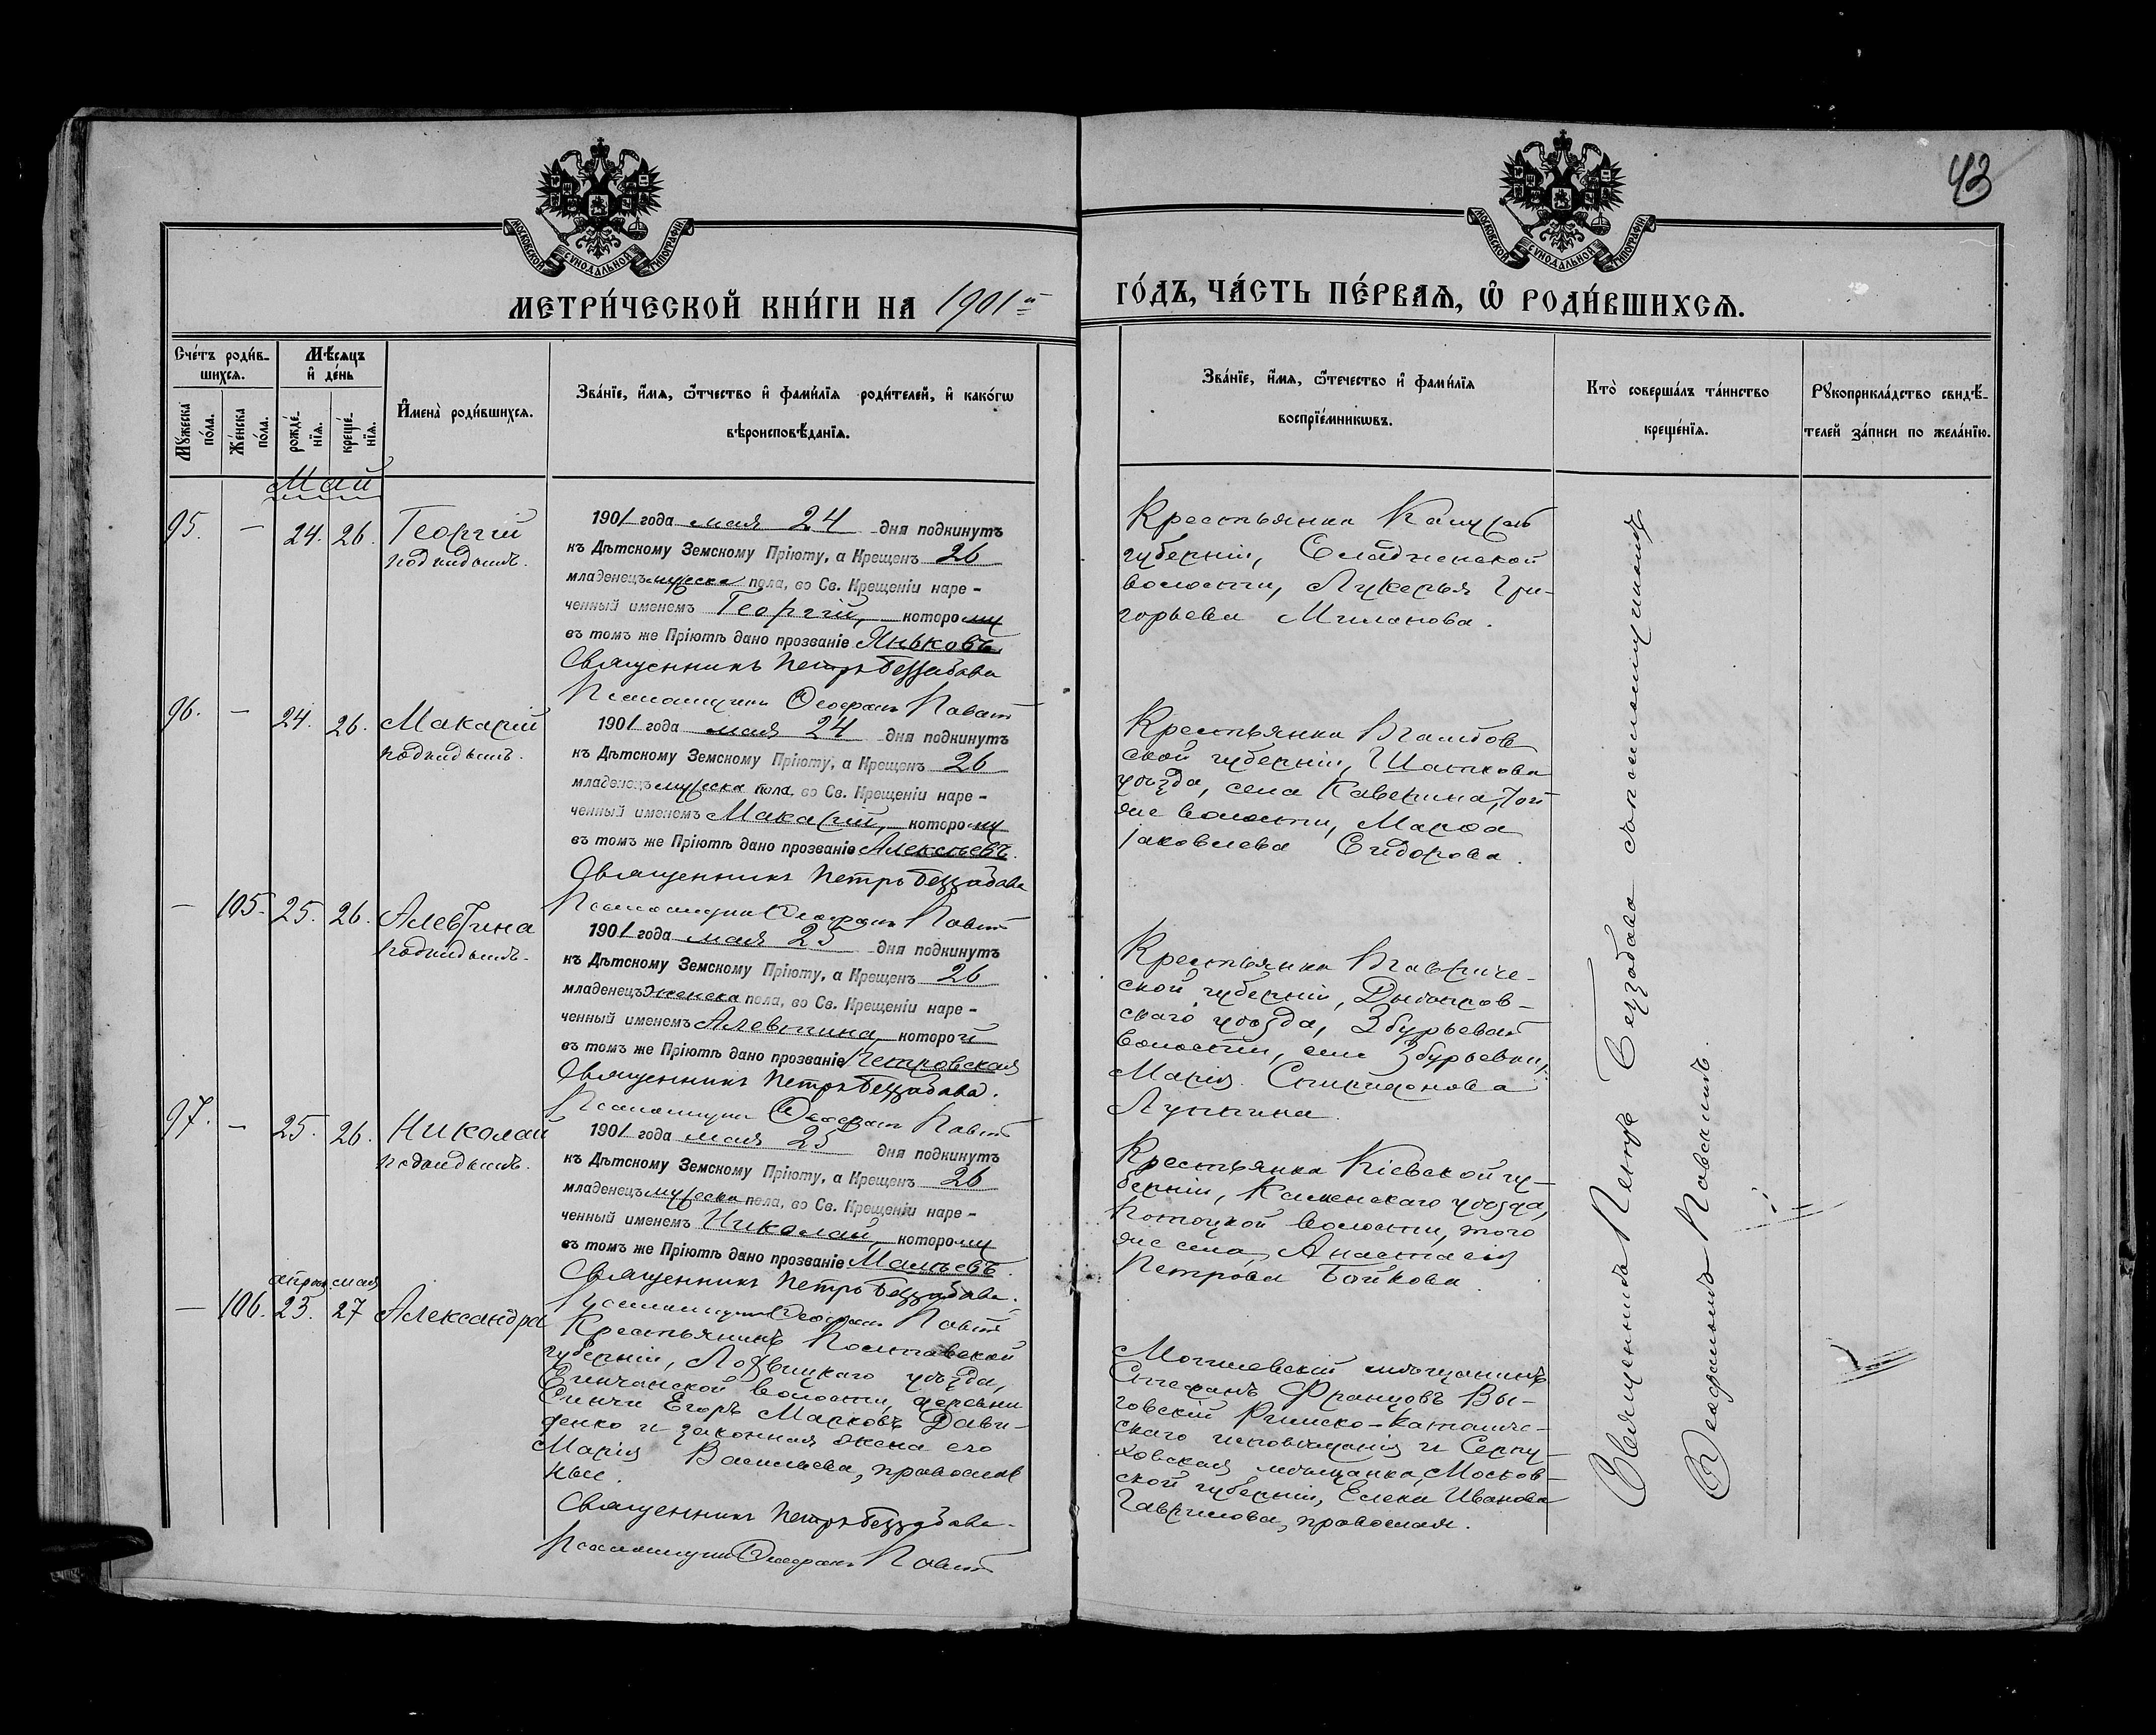 43
МОСКОВСКОЙ СѴНОДАЛЬНОЙ ТИПОГРАФІИ
МОСКОВСКОЙ СѴНОДАЛЬНОЙ ТИПОГРАФІИ
МЕТРИ́ЧЕСКОЙ КНИ́ГИ НА 1901й
ГО́ДЪ, ЧА́СТЬ ПЕ́РВАѦ, Ѽ РОДИ́ВШИХСѦ.
Сче́тъ роди́в-
шихсѧ.
Мѣ́сѧцъ
и҆ де́нь
Мꙋ́жеска
по́ла.
Же́нска
по́ла.
рожде́-
нїѧ.
креще́-
нїѧ.
И҆мена̀ роди́вшихсѧ.
Зва́нїе, и҆́мѧ, ѻ҆́тчество и҆ фами́лїѧ роди́телей, и҆ како́гѡ
вѣроисповѣ́данїѧ.
Зва́нїе, и҆́мѧ, ѻ҆́течество и҆ фами́лїѧ
воспрїе́мникѡвъ.
Кто̀ соверша́лъ та́инство
креще́нїѧ.
Рꙋкоприкла́дство свидѣ́-
телей за́писи по жела́нїю.
Май
95. — 24. 26. Георгій
подкидышъ.
1901 года мая 24 дня подкинутъ
къ Дѣтскому Земскому Пріюту, а Крещенъ 26
младенецъ мужеска пола, во Св. Крещеніи наре-
ченный именемъ Георгій, которому
въ томъ же Пріютѣ дано прозваніе Яньковъ
Священникъ Петръ Беззабава
Псаломщикъ Ѳеофанъ
Крестьянка
губерніи,
волости, Лукерья Гри-
горьева Миланова.
96. — 24. 26. Макарій
подкидышъ.
1901 года мая 24 дня подкинутъ
къ Дѣтскому Земскому Пріюту, а Крещенъ 26
младенецъ мужеска пола, во Св. Крещеніи наре-
ченный именемъ Макарій, которому
въ томъ же Пріютѣ дано прозваніе Алексѣевъ.
Священникъ Петръ Беззабава
Псаломщикъ Ѳеофанъ
Крестьянка Тамбов
ской губерніи, Шацкова
уѣзда, села Каверина, той
же волости, Марѳа
Іаковлева Сидорова.
— 105. 25. 26. Алевтина
подкидышъ.
1901 года мая 25 дня подкинутъ
къ Дѣтскому Земскому Пріюту, а Крещенъ 26
младенецъ женска пола, во Св. Крещеніи наре-
ченный именемъ Алевтина, которой
въ томъ же Пріютѣ дано прозваніе Петровская
Священникъ Петръ Беззабава.
Псаломщикъ Ѳеофанъ
Крестьянка Тавриче-
ской губерніи, Днѣпров-
скаго уѣзда, Збурьевской
волости, села Збурьевки,
Марія Спиридонова
97. — 25. 26. Николай
подкидышъ.
1901 года мая 25 дня подкинутъ
къ Дѣтскому Земскому Пріюту, а Крещенъ 26
младенецъ мужеска пола, во Св. Крещеніи наре-
ченный именемъ Николай, которому
въ томъ же Пріютѣ дано прозваніе
Священникъ Петръ Беззабава.
Псаломщикъ Ѳеофанъ
Крестьянка Кіевской гу-
берніи, уѣзда,
Потоцкой волости, того
же села, Анастасія
Петрова Бойкова.
апрѣл. мая
— 106. 25. 27 Александра
Крестьянинъ Полтавской
губерніи, Лохвицкаго уѣзда,
волости, деревни
Сенчи Егоръ Марковъ Дави-
денко и законная жена его
Марія Васильева, православ
ные.
Священникъ Петръ Беззабава.
Псаломщикъ Ѳеофанъ
Могилевскій мѣщанинъ
Стефанъ Францовъ Вы-
говскій Римско-католиче-
скаго исповѣданія и Серпу-
ховская мѣщанка, Москов-
ской губерніи, Елена Иванова
Гаврилова, православ.
Священникъ Петръ Беззабава съ псаломщикомъ
Ѳеофаномъ